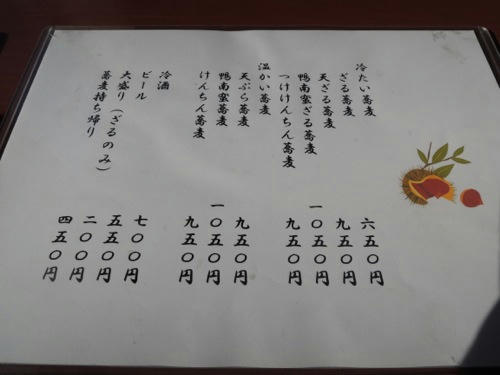 冷たい蕎麦
ざる蕎麦 六五〇円
天ざる蕎麦 九五〇円
鴨南蛮ざる蕎麦 一〇五〇円
つけけんちん蕎麦 九五〇円
温かい蕎麦
天ぷら蕎麦 九五〇円
鴨南蛮蕎麦 一〇五〇円
けんちん蕎麦 九五〇円
冷酒 七〇〇円
ビール 五五〇円
大盛り(ざるのみ) 二〇〇円
蕎麦持ち帰り 四五〇円